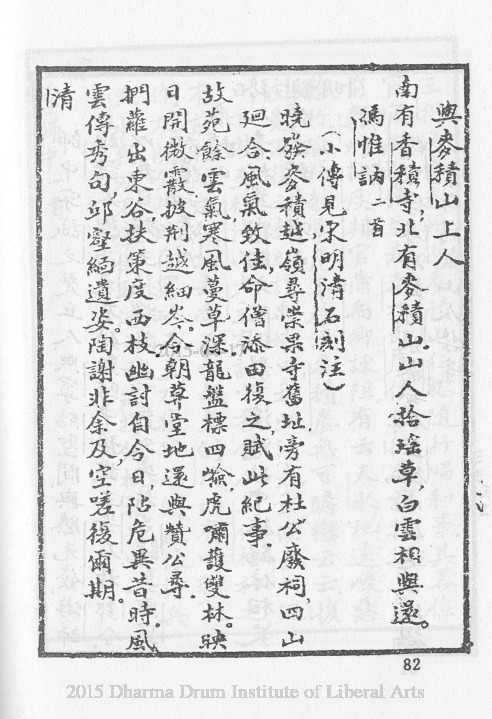 與麥積山上人
南有香積寺，北有麥積山。山人拾瑤草，白雲相與還。
馮惟訥 二首
（小傳見宋明清石刻注）
曉發麥積越嶺尋崇果寺舊址旁有杜公廢祠，四山
迴合，風氣致佳，命僧添田復之，賦此紀事。
故苑餘雲氣，寒風蔓草深。龍盤標四嶮，虎爾護雙林。映
日開微霰，披荆越細岑。今朝草堂地，還與贊公尋。
捫蘿出東谷，扶策度西枝。幽討自今日，阽危異昔時。風
雲傳秀句，邱壑緬遺姿。陶謝非余及，空嗟後爾期。
清
82
2015 Dharma Drum Institute of Liberal Arts